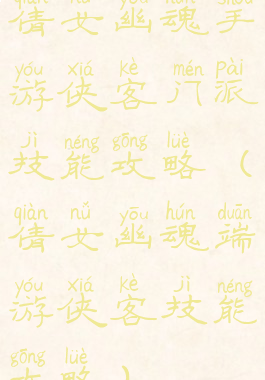 qiàn nǚ yōu hún shǒu
倩女幽魂手
yóu xiá kè mén pài
游侠客门派
jì néng gōng lüè
技能攻略（
qiàn nǚ yōu hún duān
倩女幽魂端
yóu xiá kè jì néng
游侠客技能
gōng lüè
攻略）